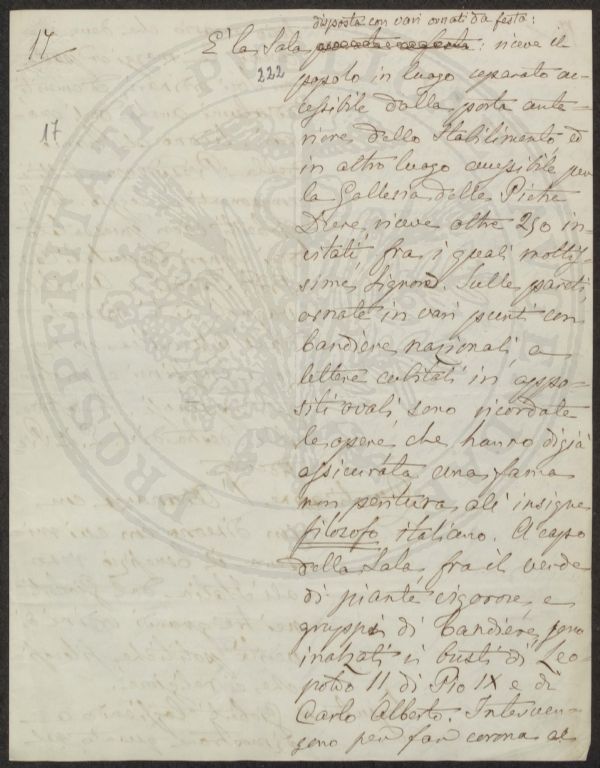 17
disposta con vari ornati da festa:
E' la Sala parata a festa: riceve il
222
popolo in luogo separato ac-
cessibile dalla porta ante-
17
riore dello Stabilimento ed
in altro luogo accessibile per
la Galleria delle Pietre
Dure, riceve oltre 250 in-
vitati, fra i quali moltis-
sime Signore. Sulle pareti,
ornate in vari punti con
bandiere nazionali, a
lettere cubitali in appo-
siti ovali sono ricordate
le opere, che hanno digià
assicurata una fama
non peritura all'insigne
filosofo italiano. A capo
della Sala fra il verde
di piante vigorose, e
gruppi di bandiere, sono
inalzati i busti di Leo-
poldo II, di Pio IX e di
Carlo Alberto. Interven-
gono per far corona al
PROSPERITATI PUBLICAE